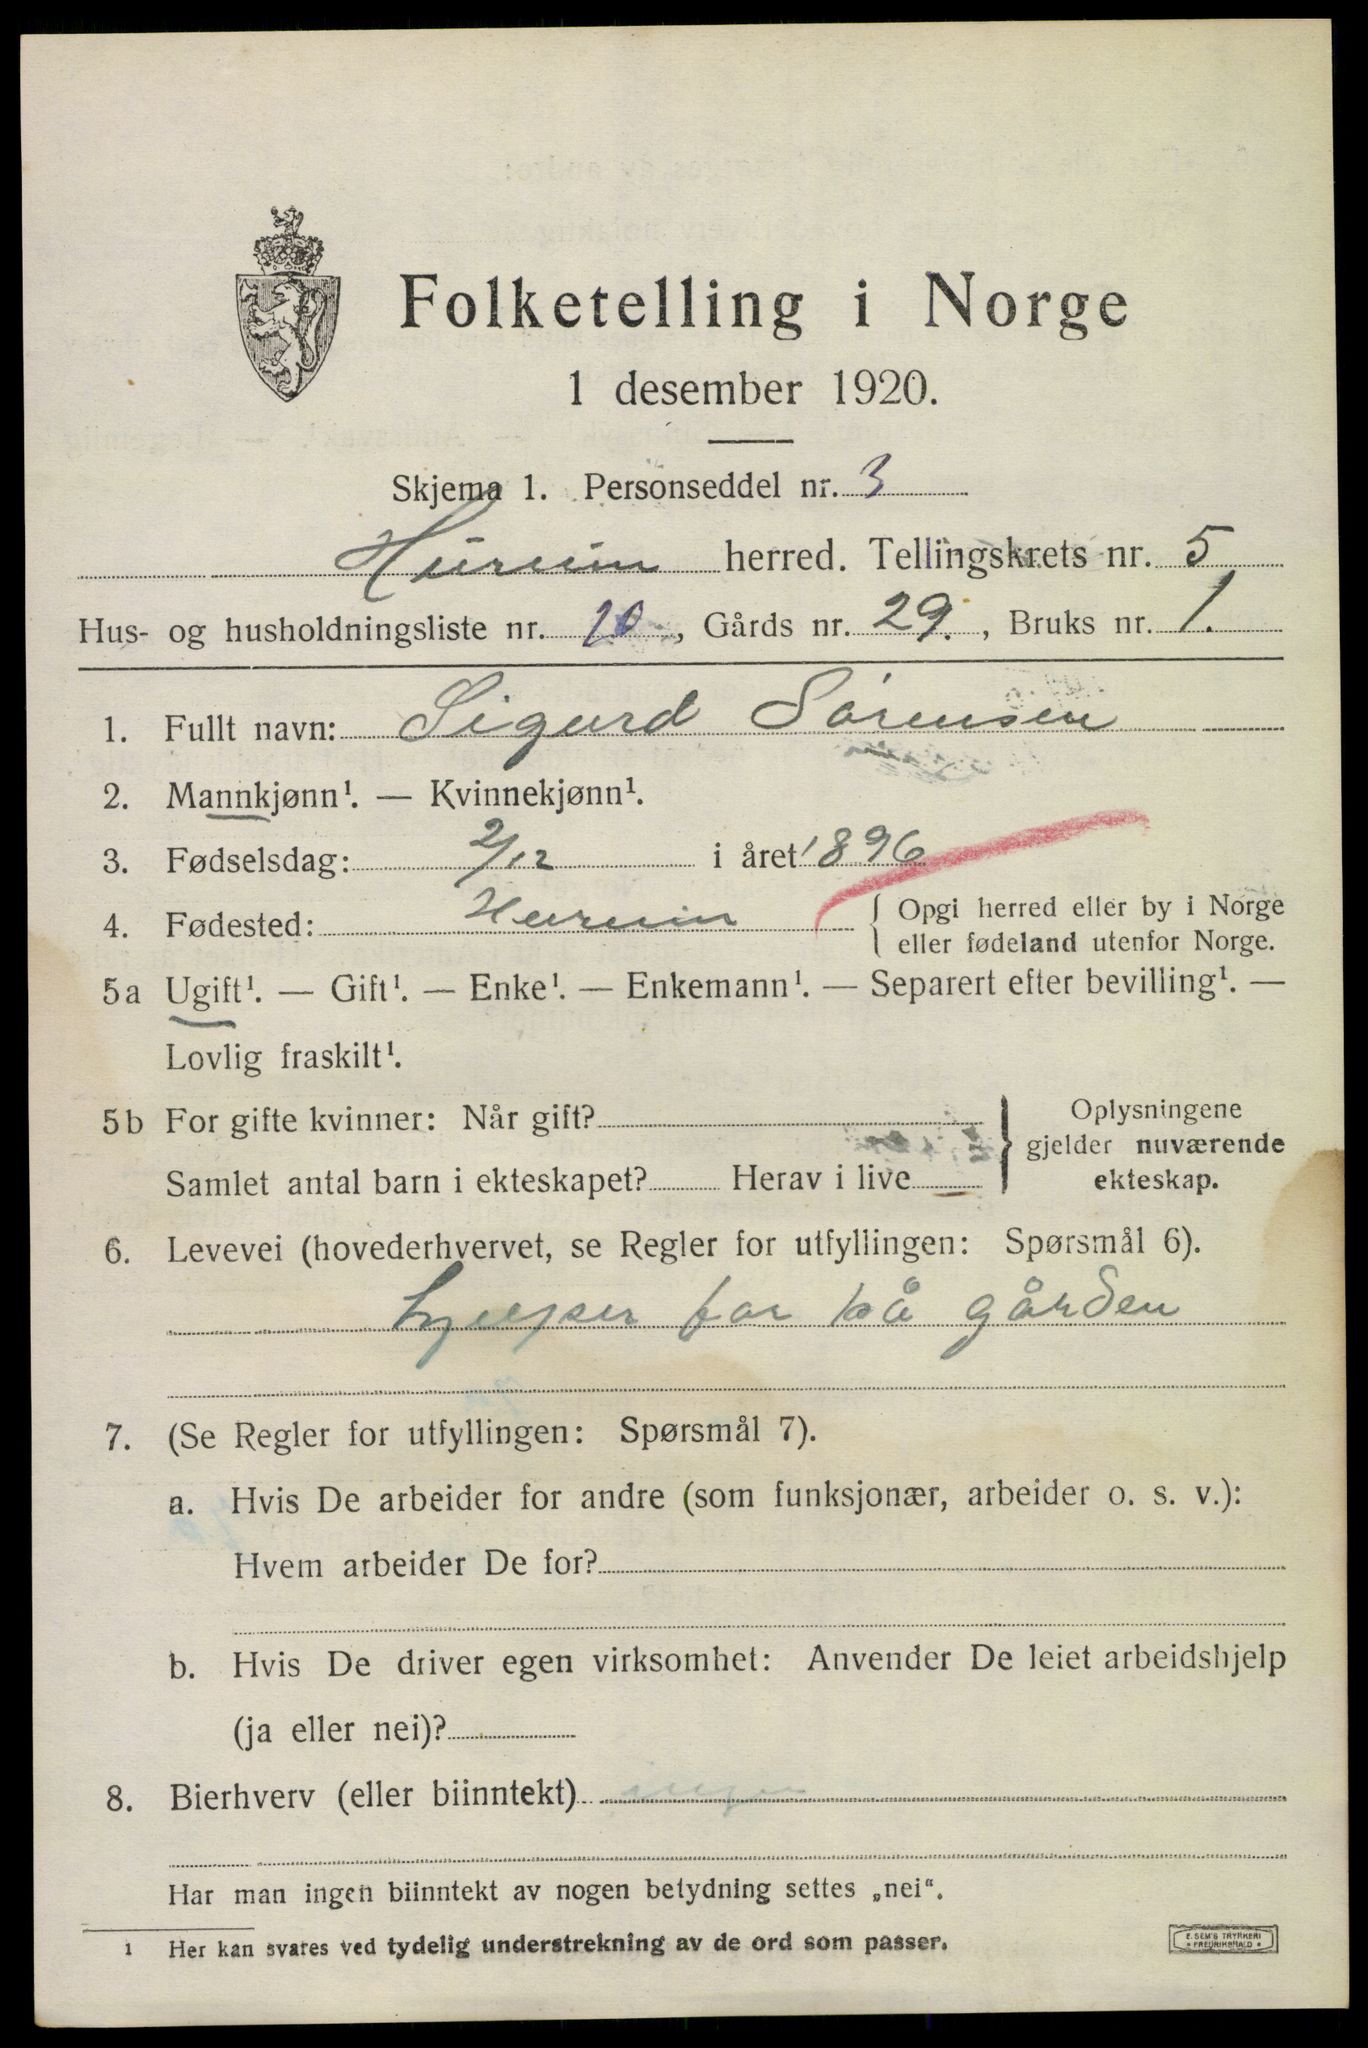 Folketelling i Norge
1 desember 1920.
Skjema 1. Personseddel nr. 3
Hurum herred. Tellingskrets nr. 5
Hus- og husholdningsliste nr. 10, Gårds nr. 29., Bruks nr. 1.
1. Fullt navn: Sigurd Sörensen
2. Mannkjønn¹. — Kvinnekjønn¹.
3. Fødselsdag: 2/12 i året 1896
4. Fødested: Hurum { Opgi herred eller by i Norge
eller fødeland utenfor Norge.
5a Ugift¹. — Gift¹. — Enke¹. — Enkemann¹. — Separert efter bevilling¹. —
Lovlig fraskilt¹.
5b For gifte kvinner: Når gift?
Samlet antal barn i ekteskapet? Herav i live
} Oplysningene
gjelder nuværende
ekteskap.
6. Levevei (hovederhvervet, se Regler for utfyllingen: Spørsmål 6).
hjelper far på gården
7. (Se Regler for utfyllingen: Spørsmål 7).
a. Hvis De arbeider for andre (som funksjonær, arbeider o. s. v.):
Hvem arbeider De for?
b. Hvis De driver egen virksomhet: Anvender De leiet arbeidshjelp
(ja eller nei)?
8. Bierhverv (eller biinntekt) ingen
Har man ingen biinntekt av nogen betydning settes „nei“.
1 Her kan svares ved tydelig understrekning av de ord som passer.
E. SEM'S TRYKKERI
FREDRIKSHALD